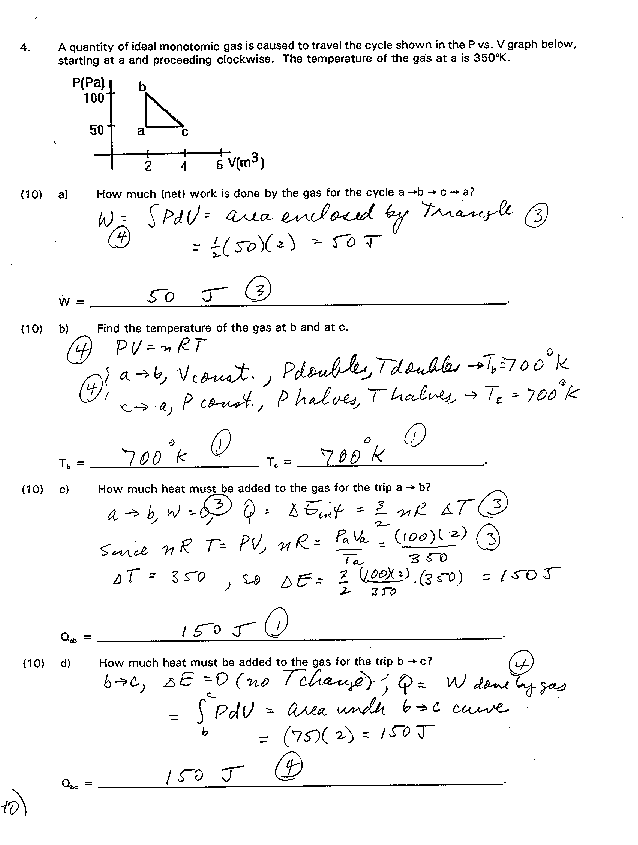 4. A quantity of ideal monotomic gas is caused to travel the cycle shown in the P vs. V graph below,
starting at a and proceeding clockwise. The temperature of the gas at a is 350°K.
P(Pa)
100
b
50
a
c
2 4 6 V(m³)
(10) a) How much (net) work is done by the gas for the cycle a → b → c → a?
W = ∫ PdV = area enclosed by Triangle ③
④ = ½(50)(2) = 50 J
W = 50 J ③
(10) b) Find the temperature of the gas at b and at c.
④ PV = nRT
④ { a → b, V const., P doubles, T doubles → T_b = 700°K
c → a, P const., P halves, T halves, → T_c = 700°K
T_b = 700°K ① T_c = 700°K ①
(10) c) How much heat must be added to the gas for the trip a → b?
a → b, W = 0, ③ Q = ΔE_int = 3/2 nR ΔT ③
Since nRT = PV, nR = PaVa/Ta = (100)(2)/350 ③
ΔT = 350, so ΔE = 3/2 (100)(2)/350 · (350) = 150 J
Q_ab = 150 J ①
(10) d) How much heat must be added to the gas for the trip b → c?
b → c, ΔE = 0 (no T change); Q = W done by gas ④
= ∫_b^c PdV = area under b → c curve
= (75)(2) = 150 J
Q_bc = 150 J ④